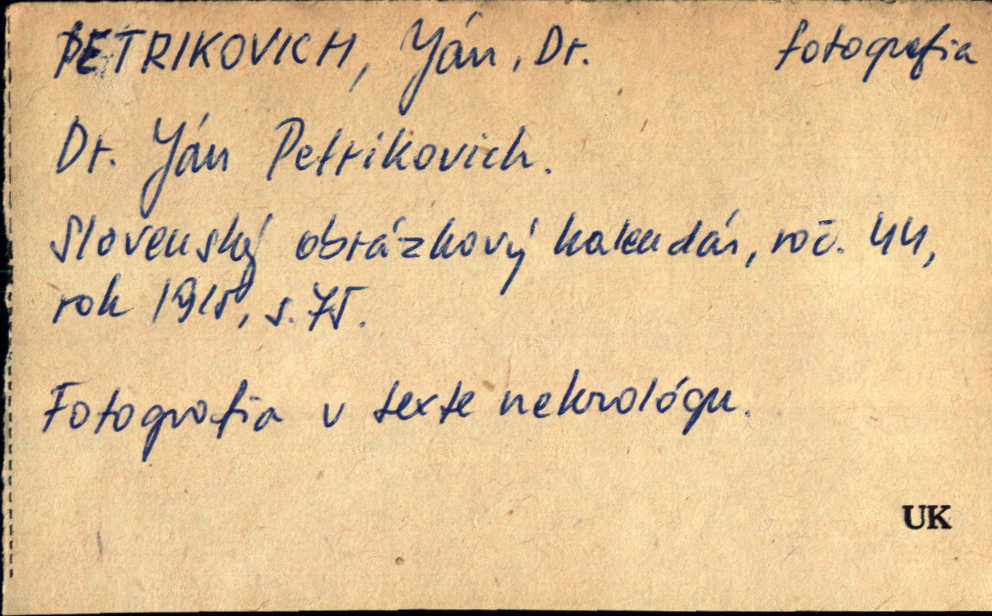 PETRIKOVICH, Ján, Dr. fotografia
Dr. Ján Petrikovich.
Slovenský obrázkový kalendár, roč. 44,
rok 1915, s. 75.
Fotografia v texte nekrológu.
UK